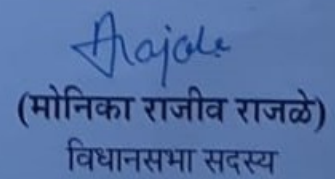 Rajale
(मोनिका राजीव राजळे)
विधानसभा सदस्य